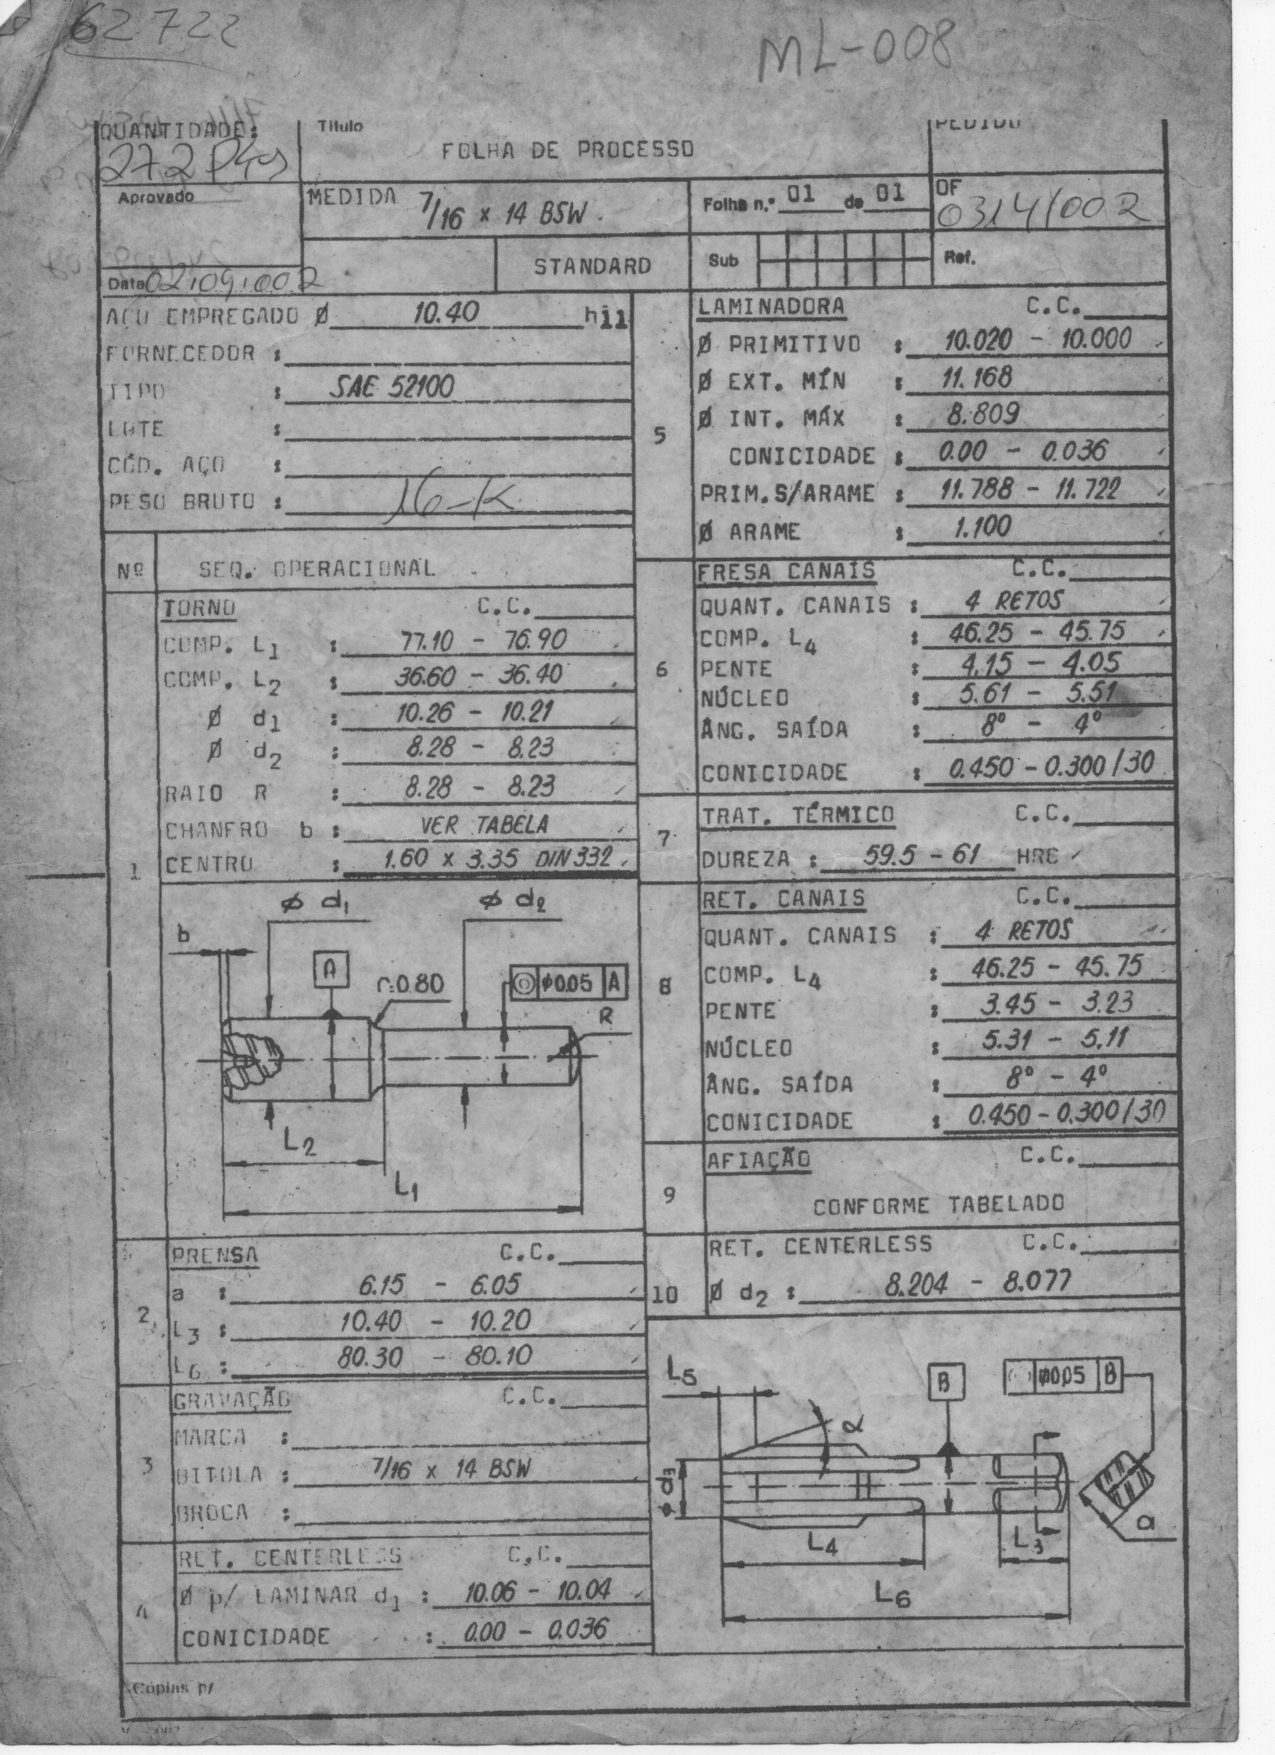 62722
ML-008
QUANTIDADE:
Título
FOLHA DE PROCESSO
PEDIDO
Aprovado
MEDIDA 7/16 x 14 BSW.
Folha n.º 01 de 01
OF
0314/002
STANDARD
Sub
Ref.
Data 02.09.002
AÇO EMPREGADO Ø 10.40 h11
FORNECEDOR :
TIPO : SAE 52100
LOTE :
CÓD. AÇO :
PESO BRUTO : 16-K
Nº SEQ. OPERACIONAL
1
TORNO C.C.
COMP. L1 : 77.10 - 76.90
COMP. L2 : 36.60 - 36.40
Ø d1 : 10.26 - 10.21
Ø d2 : 8.28 - 8.23
RAIO R : 8.28 - 8.23
CHANFRO b : VER TABELA
CENTRO : 1.60 x 3.35 DIN 332
Ø d1
Ø d2
b
A
r:0.80
Ø0.05 A
R
L2
L1
2
PRENSA C.C.
a : 6.15 - 6.05
L3 : 10.40 - 10.20
L6 : 80.30 - 80.10
3
GRAVAÇÃO C.C.
MARCA :
BITOLA : 7/16 x 14 BSW
BROCA :
4
RET. CENTERLESS C.C.
Ø p/ LAMINAR d1 : 10.06 - 10.04
CONICIDADE : 0.00 - 0.036
5
LAMINADORA C.C.
Ø PRIMITIVO : 10.020 - 10.000
Ø EXT. MÍN : 11.168
Ø INT. MÁX : 8.809
CONICIDADE : 0.00 - 0.036
PRIM.S/ARAME : 11.788 - 11.722
Ø ARAME : 1.100
6
FRESA CANAIS C.C.
QUANT. CANAIS : 4 RETOS
COMP. L4 : 46.25 - 45.75
PENTE : 4.15 - 4.05
NÚCLEO : 5.61 - 5.51
ÂNG. SAÍDA : 8º - 4º
CONICIDADE : 0.450 - 0.300/30
7
TRAT. TÉRMICO C.C.
DUREZA : 59.5 - 61 HRC
8
RET. CANAIS C.C.
QUANT. CANAIS : 4 RETOS
COMP. L4 : 46.25 - 45.75
PENTE : 3.45 - 3.23
NÚCLEO : 5.31 - 5.11
ÂNG. SAÍDA : 8º - 4º
CONICIDADE : 0.450 - 0.300/30
9
AFIAÇÃO C.C.
CONFORME TABELADO
10
RET. CENTERLESS C.C.
Ø d2 : 8.204 - 8.077
L5
α
B
Ø0.05 B
Ø d3
a
L4
L3
L6
Cópias p/